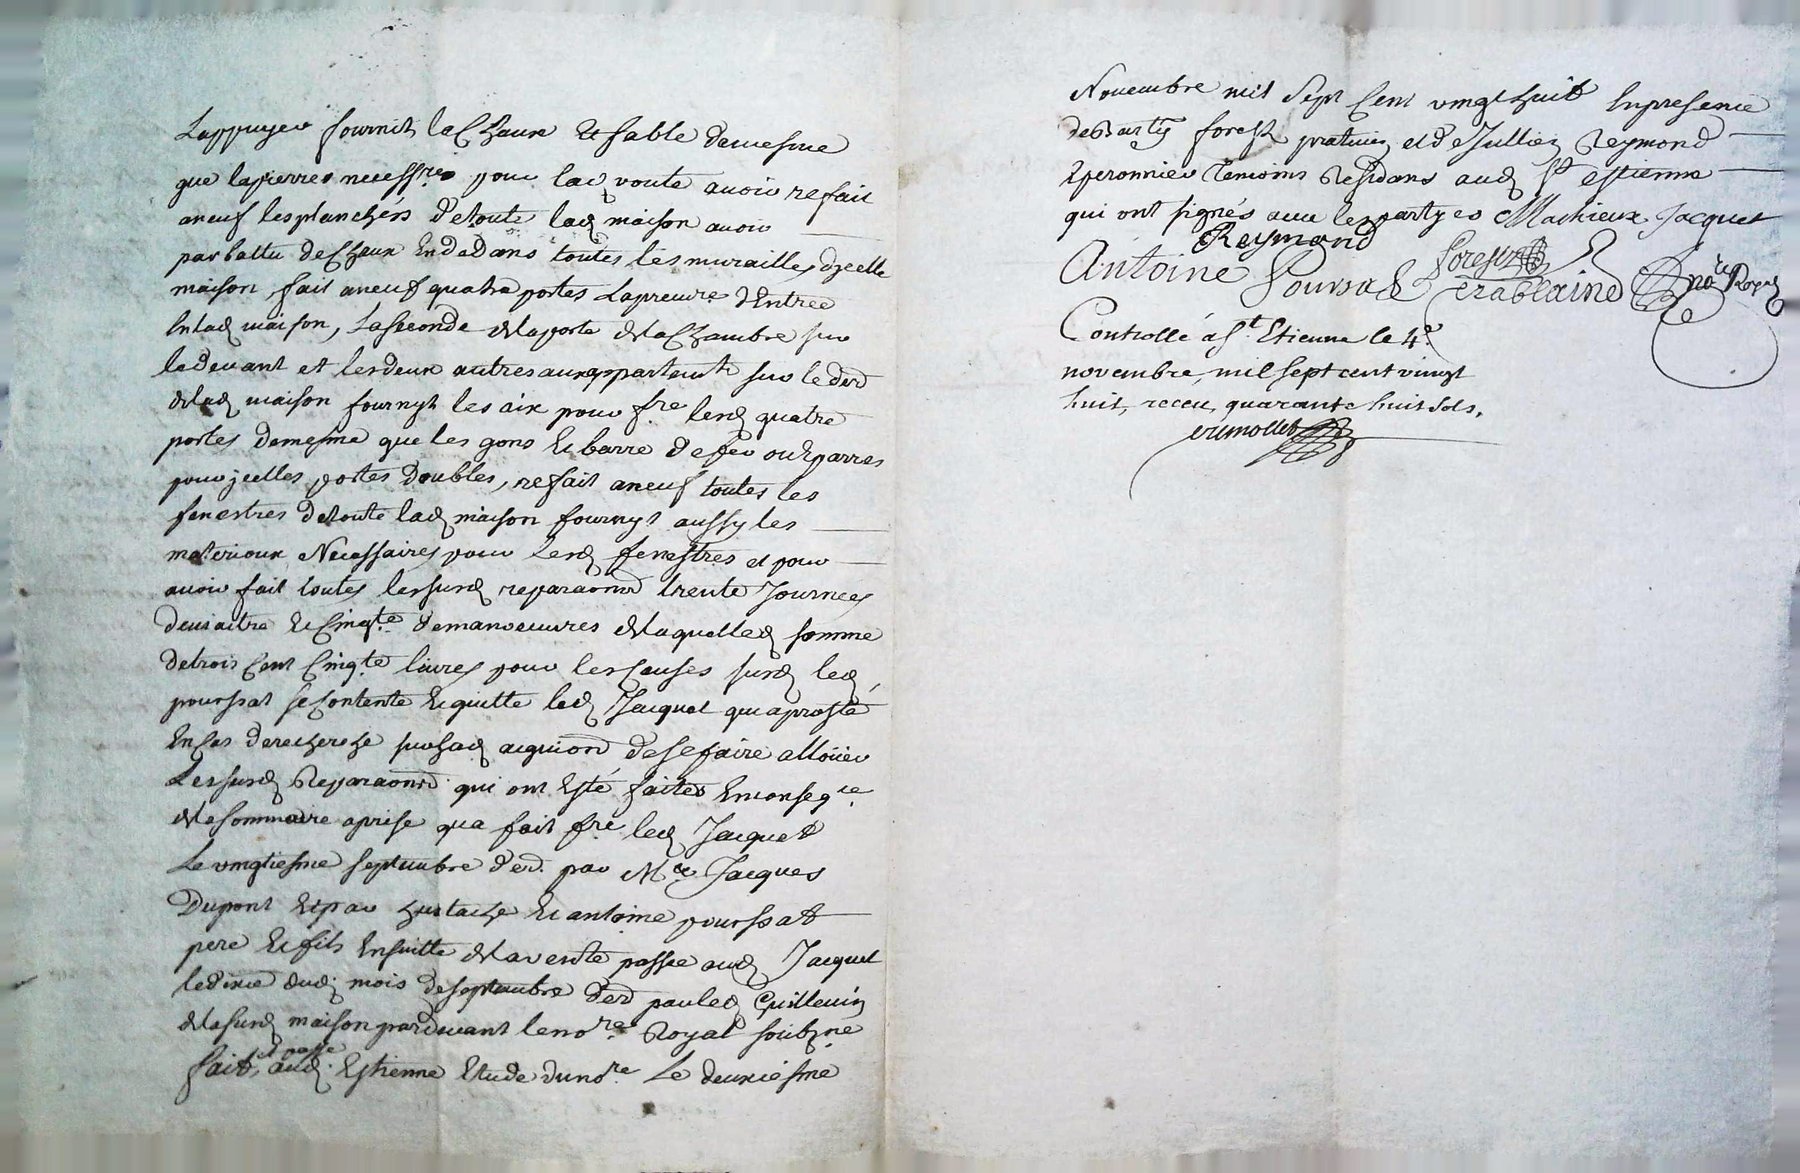 Lappuyer fournit la Chaux Et sable demesme
que lapierre necessre pour lad voute avoir refait
aneuf lesplanchers detoute lad maison avoir
parbattu deChaux Endedans toutes les murailles dycelle
maison, fait aneuf quatre portes Lapremre dEntrée
Enlad maison, Laseconde delaporte delaChambre sur
ledevant et lesdeux autres aux appartemts sur leder
delad maison fournyt les aix pour fre lesd quatre
portes demesme que les gons Et barre defer
pour jcelles portes doubles, refait aneuf toutes les
fenestres detoute lad maison fournyt aussy les
materiaux Necessaires pour Lesd fenestres et pour
avoir fait toutes lessusd reparaons trente Journées
demaitre Et Cinqte demanoeuvres delaquelled somme
detrois Cent Cinqte livres pour lescauses susd led
poursat seContente Et quitte led Jacquet qui aprosté
EnCas derecherche sursad aquion desefaire alloüer
Lessusd Reparaons qui ont Esté faites Enconseqce
delasommaire aprise qua fait fre led Jacquet
Le vingtiesme septembre der par Me Jacques
Dupont Et par Eustache Et antoine poursat
pere Et fils Ensuitte delavente passée aud Jacquet
ledixie dud mois deseptembre der parled Guillemin
delasusd maison pardevant leno.re Royal soubzne
fait, et passé aud. Estienne Etude duno.re Le deuxiesme
Novembre mil Sept Cent vingt huit Enpresence
deBarty forest praticien et de Jullien Reymond
Eperonnier Temoins Residans aud St estienne
qui ont signés avec lespartyes Mathieux Jacquet
Reymond
Antoine Poursat forest
erablaind no.re Royal
Controllé à St. Etienne le 4e.
novembre, mil sept cent vingt
huit, receu, quarante huit sols.